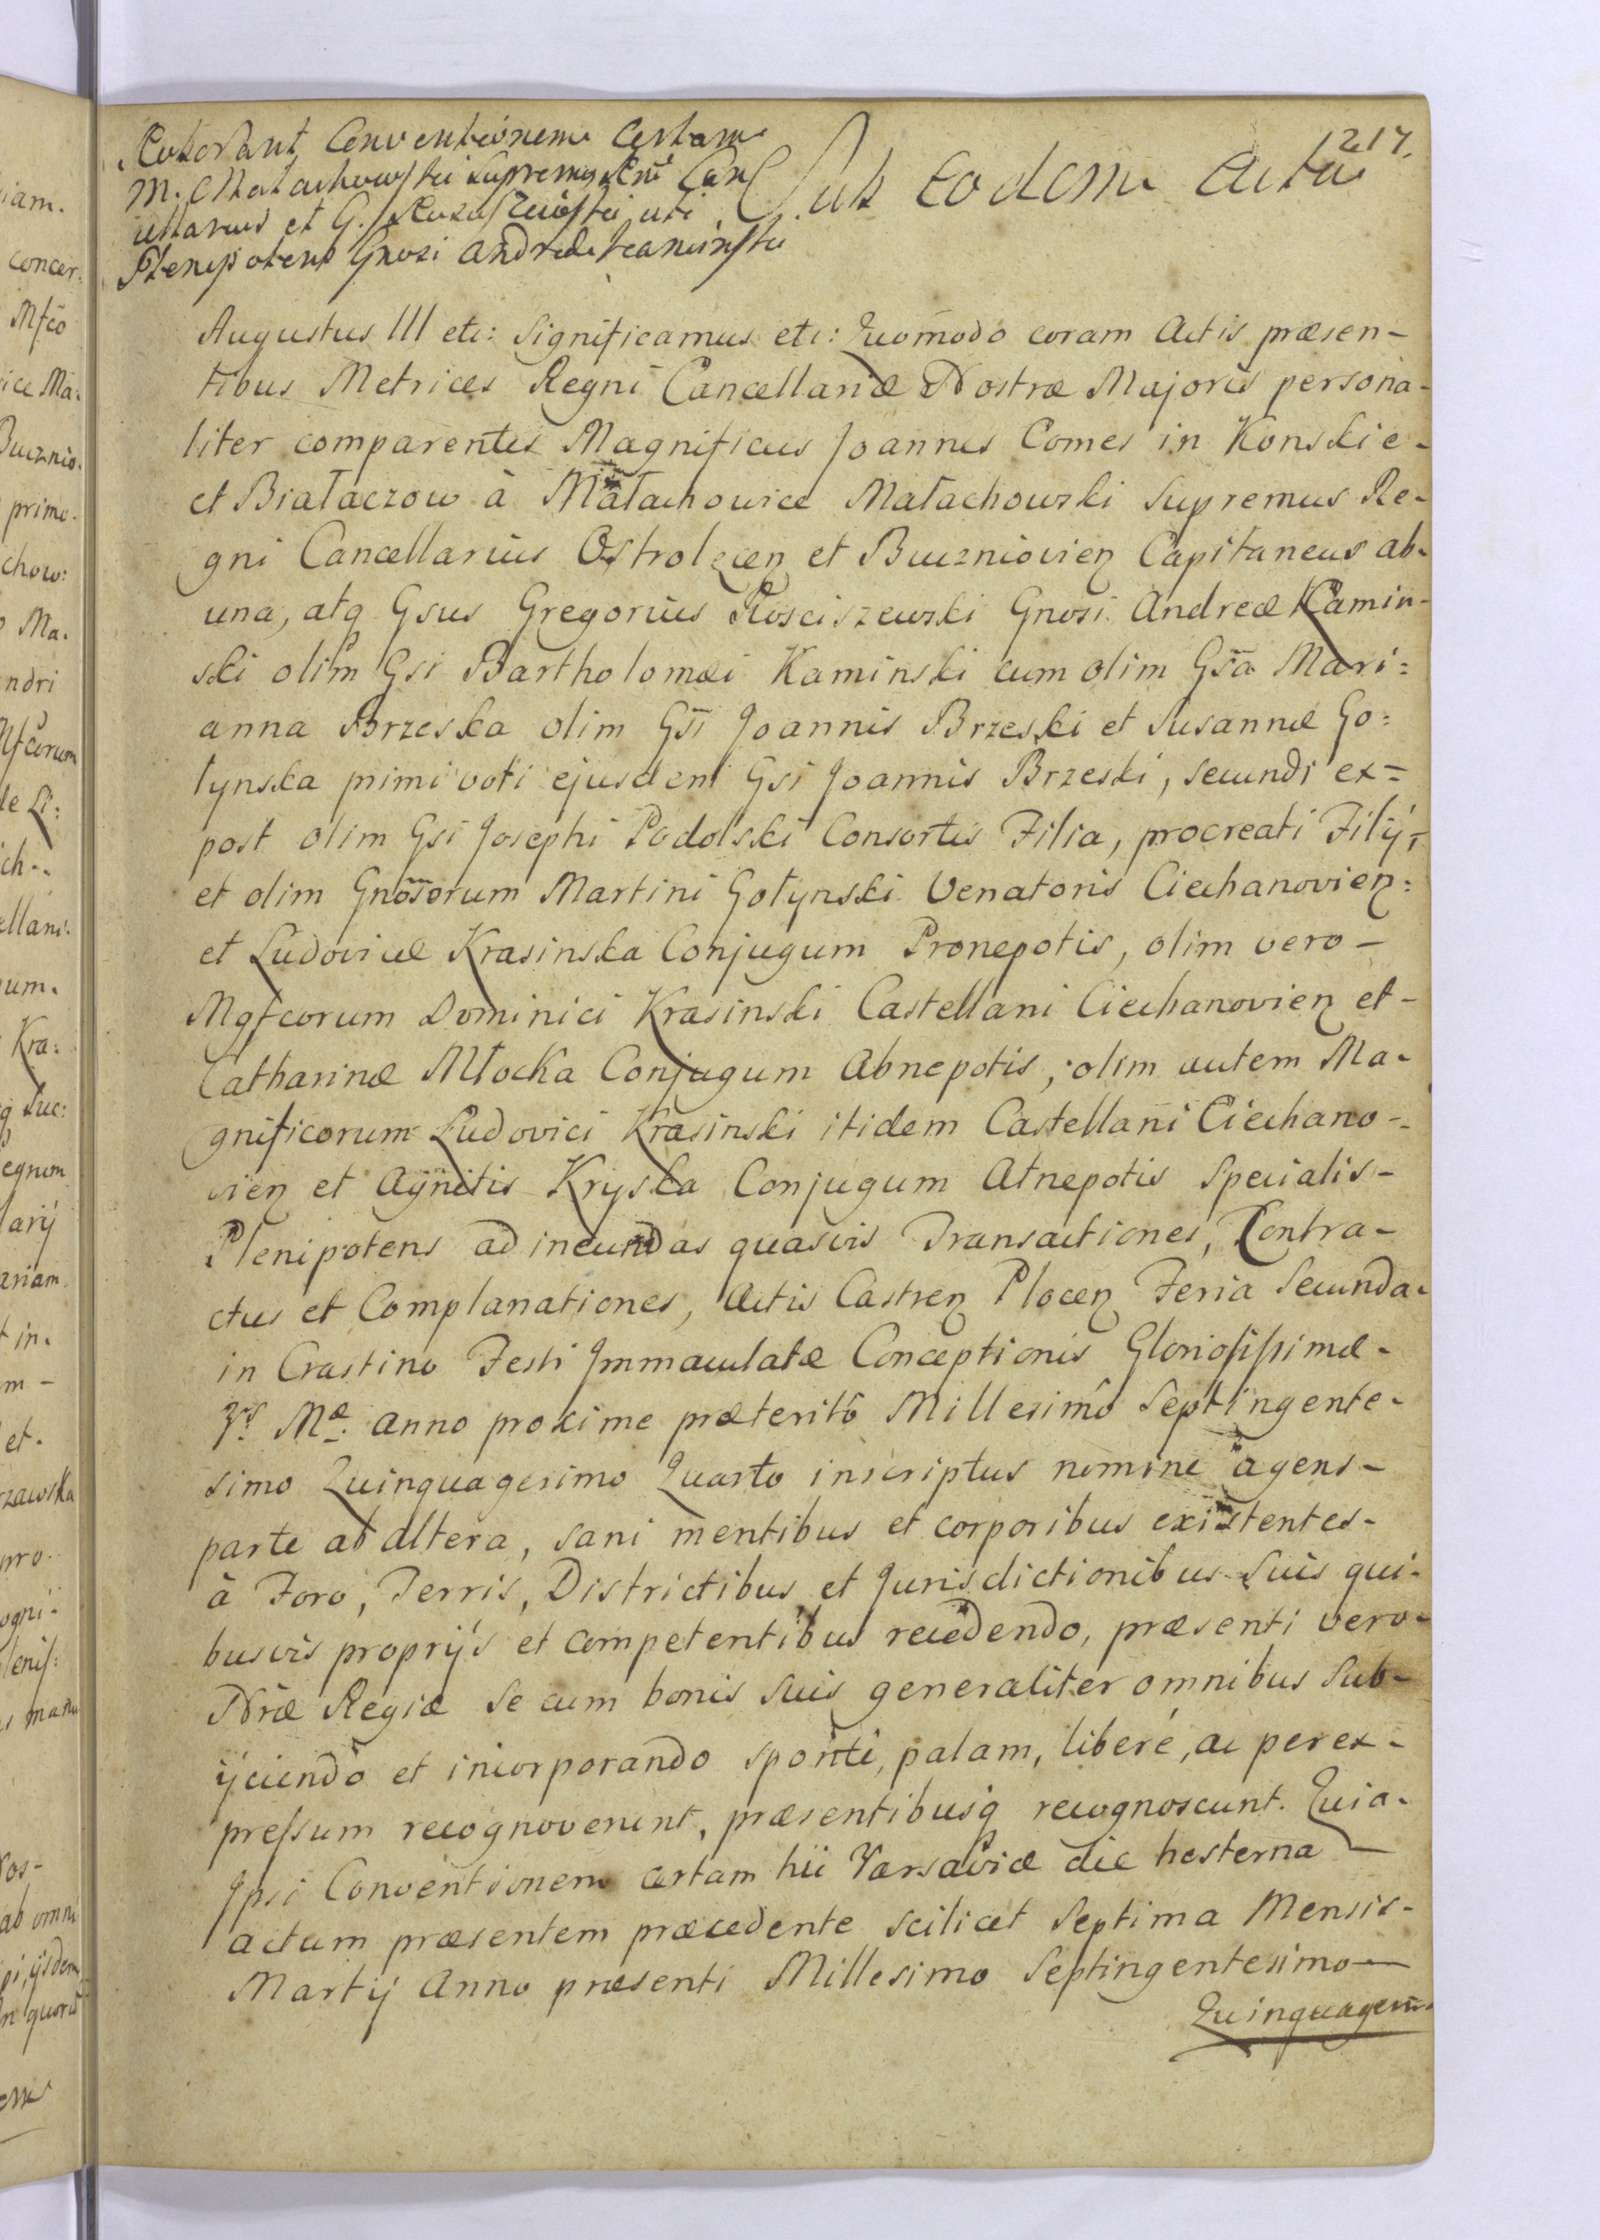 217.
Roborant Conventionem Certam
M. Małachowski Supremus Rni Can
cellarius et G. Rosciszewski uti
Plenipotens Gnosi Andreæ Kaminski
Sub eodem Actu
Augustus III etc: Significamus etc: Quomodo coram Actis præsen-
tibus Metrices Regni Cancellariæ Nostræ Majoris persona-
liter comparentes Magnificus Joannes Comes in Konskie-
et Białaczow à Małachowice Małachowski Supremus Re-
gni Cancellarius Ostrolęcen et Buczniovien Capitaneus ab-
una, atq Gsus Gregorius Rosciszewski Gnosi Andreæ Kamin-
ski olim Gsi Bartholomæi Kaminski cum olim Gsa Mari:
anna Brzeska olim Gsi Joannis Brzeski et Susannæ Go:
łynska primi voti ejusdem Gsi Joannis Brzeski, secundi ex=
post olim Gsi Josephi Podolski Consortis Filia, procreati Filij,
et olim Gnosorum Martini Gołynski Venatoris Ciechanovien:
et Ludovicæ Krasinska Conjugum Pronepotis, olim vero-
Mgfcorum Dominici Krasinski Castellani Ciechanovien et-
Catharinæ Młocka Conjugum Abnepotis, olim autem Ma-
gnificorum Ludovici Krasinski itidem Castellani Ciechano-
vien et Agnetis Kryska Conjugum Atnepotis Specialis-
Plenipotens ad ineundas quasvis Transactiones, Contra-
ctus et Complanationes, Actis Castren Plocen Feria Secunda-
in Crastino Festi Immaculatæ Conceptionis Gloriosissimæ-
V. Mæ. anno proxime præterito Millesimo Septingente-
simo Quinquagesimo Quarto inscriptus nomine agens-
parte ab altera, sani mentibus et corporibus existentes-
à Foro, Terris, Districtibus et Jurisdictionibus Suis qui-
busvis proprijs et competentibus recedendo, præsenti vero-
Nræ Regiæ se cum bonis suis generaliter omnibus Sub-
ijciendo et incorporando sponte, palam, liberé, ac per ex-
pressum recognoverunt, præsentibusq recognoscunt. Quia-
Ipsi Conventionem certam hii Varsaviæ die hesterna
actum præsentem præcedente scilicet Septima Mensis-
Martij Anno præsenti Millesimo Septingentesimo-
Quinquagesi-